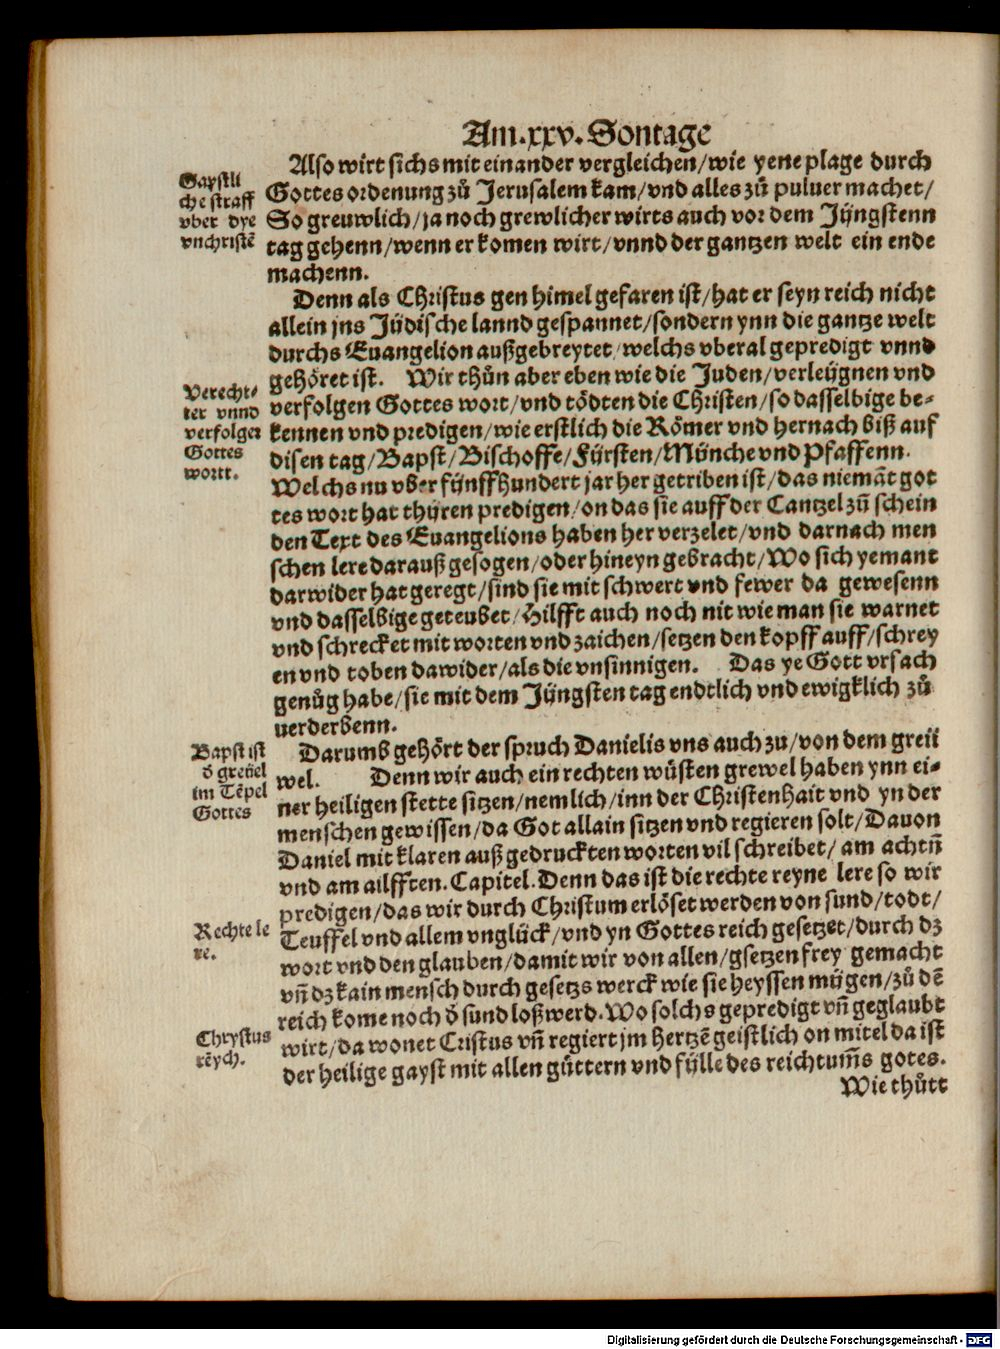 Am.xxv.Sontage
Also wirt sichs mit einander vergleichen/wie yene plage durch
Gottes ordenung zů Jerusalem kam/vnd alles zů puluer machet/
So greuwlich/ja noch grewlicher wirts auch vor dem Jüngstenn
tag gehenn/wenn er komen wirt/vnnd der gantzen welt ein ende
machenn.
Gaystli
che straff
vber dye
vnchristē
Denn als Christus gen himel gefaren ist/hat er seyn reich nicht
allein jns Jüdische lannd gespannet/sondern ynn die gantze welt
durchs Euangelion außgebreytet/welchs vberal gepredigt vnnd
gehöret ist. Wir thůn aber eben wie die Juden/verleügnen vnd
verfolgen Gottes wort/vnd tödten die Christen/so dasselbige be-
kennen vnd predigen/wie erstlich die Römer vnd hernach biß auf
disen tag/Bapst/Bischoffe/Fürsten/Münche vnd Pfaffenn.
Welchs nu vber fünffhundert jar her getriben ist/das niemāt got
tes wort hat thüren predigen/on das sie auff der Cantzel zū schein
den Text des Euangelions haben her verzelet/vnd darnach men
schen lere darauß gesogen/oder hineyn gebracht/Wo sich yemant
darwider hat geregt/sind sie mit schwert vnd fewer da gewesenn
vnd dasselbige geteubet/Hilfft auch noch nit wie man sie warnet
vnd schrecket mit worten vnd zaichen/setzen den kopff auff/schrey
en vnd toben dawider/als die vnsinnigen. Das ye Gott vrsach
genůg habe/sie mit dem Jüngsten tag endtlich vnd ewigklich zů
uerderbenn.
Verecht-
ter vnnd
verfolger
Gottes
wortt.
Darumb gehört der spruch Danielis vns auch zu/von dem greü
wel. Denn wir auch ein rechten wüsten grewel haben ynn ei-
ner heiligen stette sitzen/nemlich/inn der Christenhait vnd yn der
menschen gewissen/da Got allain sitzen vnd regieren solt/Dauon
Daniel mit klaren auß gedruckten worten vil schreibet/am achtn̄
vnd am ailfften.Capitel.Denn das ist die rechte reyne lere so wir
predigen/das wir durch Christum erlöset werden von sund/todt/
Teuffel vnd allem vnglück/vnd yn Gottes reich gesetzet/durch dz
wort vnd den glauben/damit wir von allen/gsetzen frey gemacht
vn̄ dz kain mensch durch gesetzs werck wie sie heyssen mügen/zů dē
reich kome noch ð sund loß werd.Wo solchs gepredigt vn̄ geglaubt
wirt/da wonet Cristus vn̄ regiert jm hertzē geistlich on mitel da ist
der heilige gayst mit allen güttern vnd fülle des reichtum̄s gotes.
Bapst ist
ð greüel
im Tēpel
Gottes
Rechte le
re.
Chrystus
rēych.
Wie thůtt
Digitalisierung gefördert durch die Deutsche Forschungsgemeinschaft - DFG